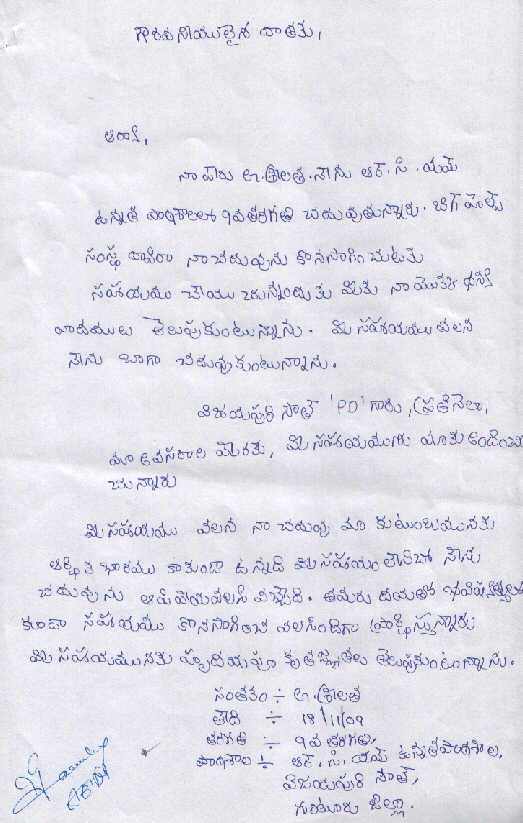 గౌరవనీయులైన దాతకు,
ఆంటీ,
నా పేరు ఎ. శ్రీలత. నేను ఆర్. సి. యమ్
ఉన్నత పాఠశాలలో 9వ తరగతి చదువుతున్నాను. బిగ్ హెల్ప్
సంస్థ ద్వారా నా చదువును కొనసాగించుటకు
సహాయము చేయుచున్నందుకు మీకు నా యొక్క ధన్య
వాదములు తెలుపుకుంటున్నాను. మీ సహాయము వలన
నేను బాగా చదువుకుంటున్నాను.
విజయపురి సౌత్ 'PD' గారు, ప్రతినెలా,
మా అవసరాల మేరకు, మీ సహాయమును మాకు అందించు
చున్నారు
మీ సహాయము వలన నా చదువు మా కుటుంబమునకు
ఆర్థిక భారము కాకుండా ఉన్నది మీ సహాయం లేకపోతే నేను
చదువును ఆపివేయవలసి వచ్చేది. తమరు దయతో భవిష్యత్తులో
కూడా సహాయము కొనసాగించ వలసిందిగా ప్రార్థిస్తున్నాను
మీ సహాయమునకు హృదయపూర్వక కృతజ్ఞతలు తెలుపుకుంటున్నాను.
సంతకం ÷ ఎ. శ్రీలత
తేది ÷ 18/11/09
తరగతి ÷ 9వ తరగతి,
పాఠశాల ÷ ఆర్. సి. యమ్ ఉన్నత పాఠశాల,
విజయపురి సౌత్,
గుంటూరు జిల్లా.